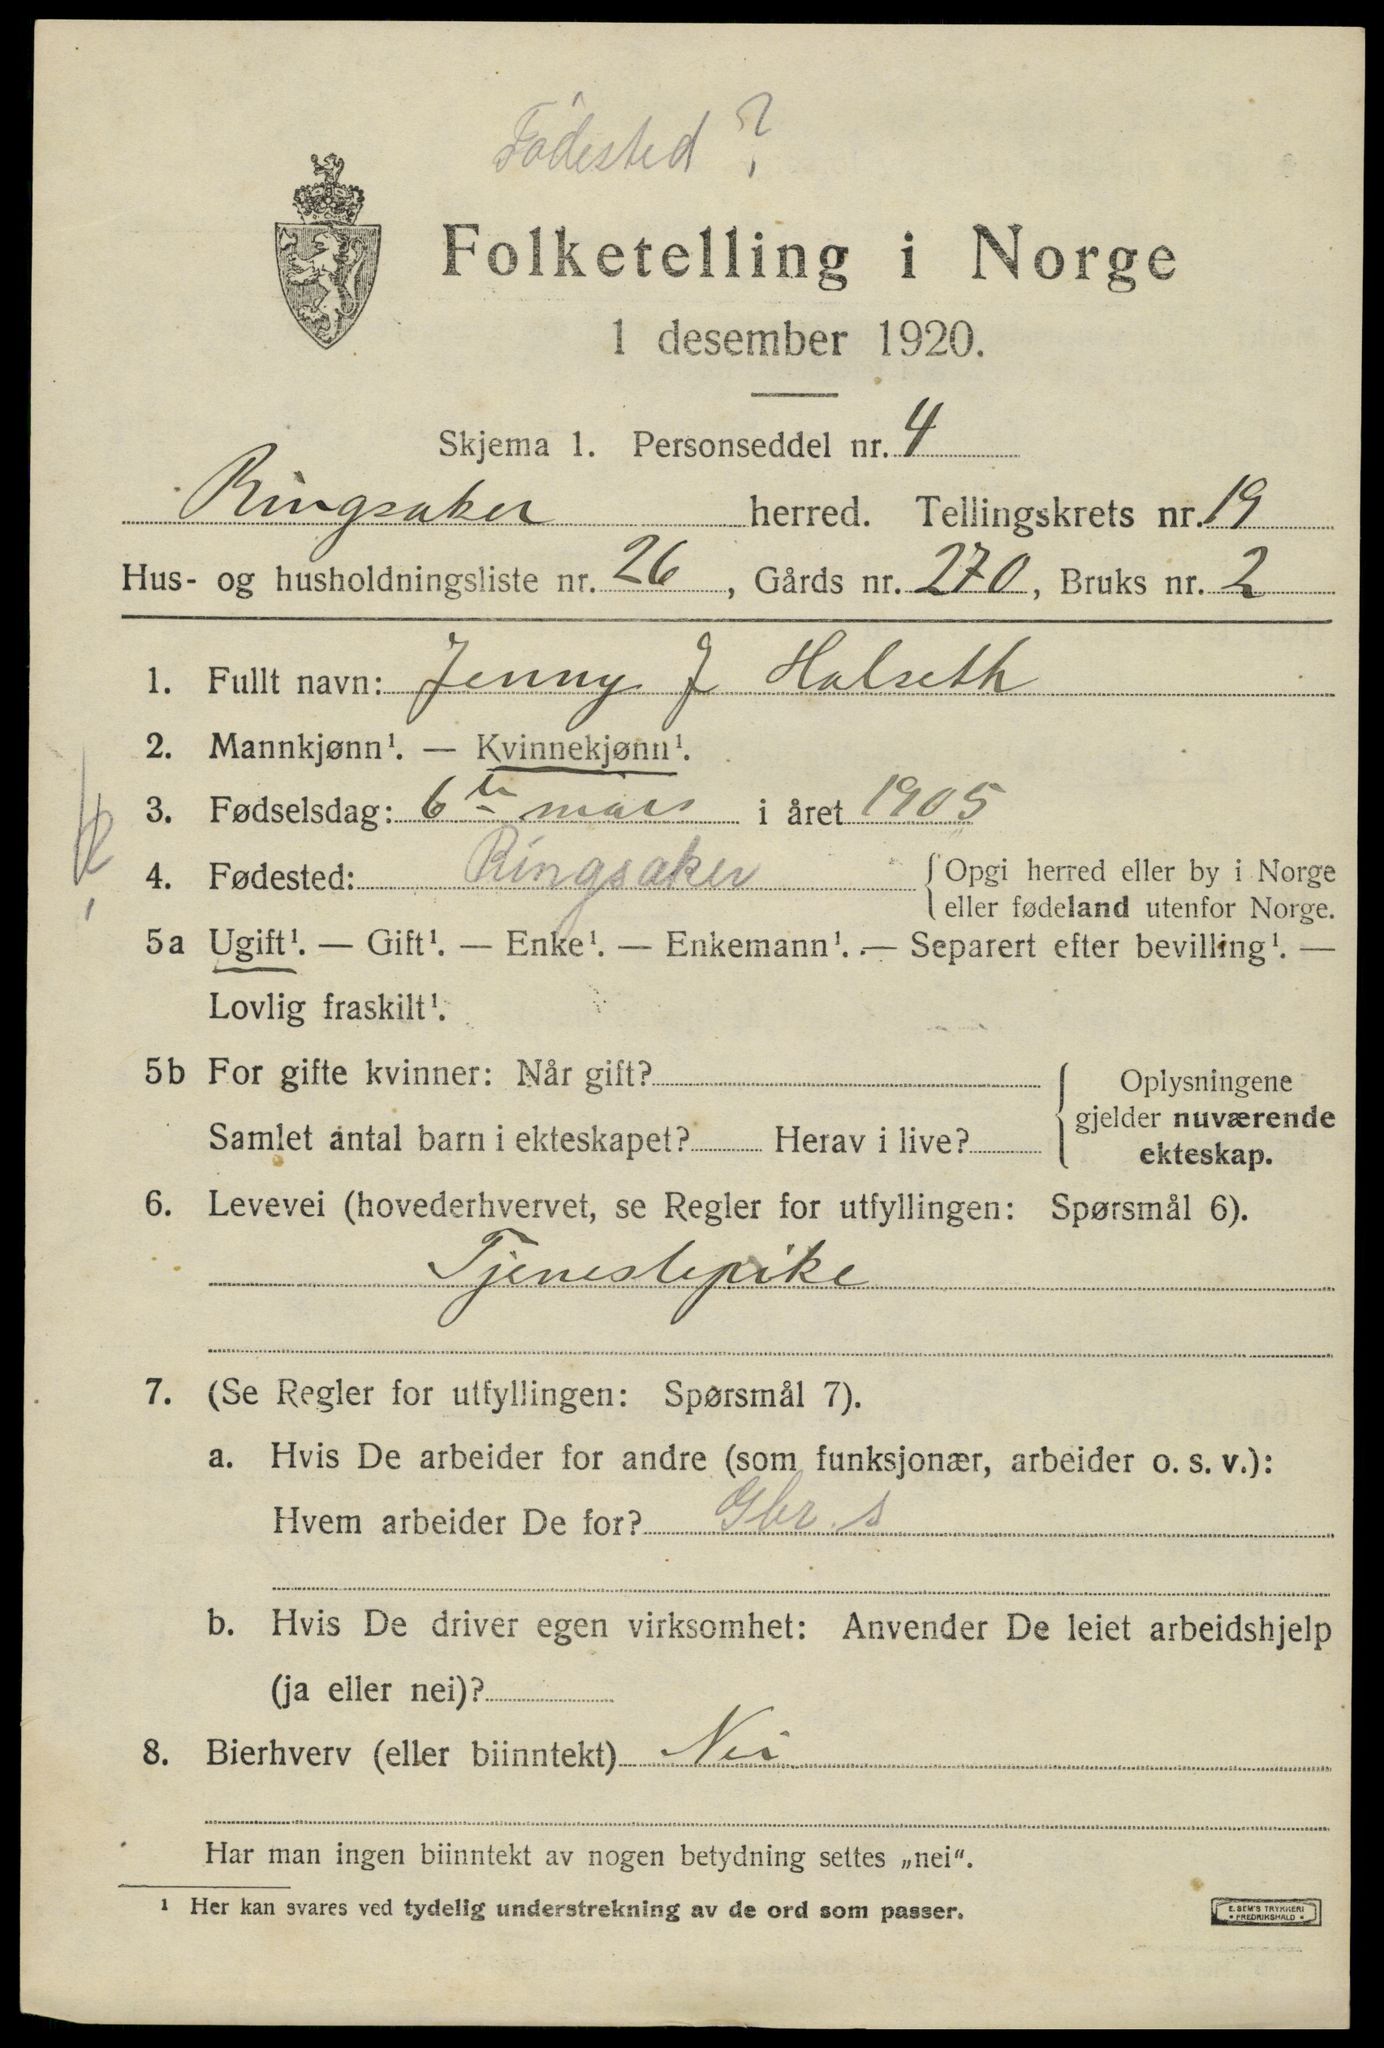 Fødested?
Folketelling i Norge
1 desember 1920.
Skjema 1. Personseddel nr. 4
Ringsaker herred. Tellingskrets nr. 19
Hus- og husholdningsliste nr. 26, Gårds nr. 270, Bruks nr. 2
1. Fullt navn: Jenny J Halseth
2. Mannkjønn¹. — Kvinnekjønn¹.
3. Fødselsdag: 6te mars i året 1905
4. Fødested: Ringsaker { Opgi herred eller by i Norge
eller fødeland utenfor Norge.
5a Ugift¹. — Gift¹. — Enke¹. — Enkemann¹. — Separert efter bevilling¹. —
Lovlig fraskilt¹.
5b For gifte kvinner: Når gift?
Samlet antal barn i ekteskapet? Herav i live?
Oplysningene
gjelder nuværende
ekteskap.
6. Levevei (hovederhvervet, se Regler for utfyllingen: Spørsmål 6).
Tjenestepike
7. (Se Regler for utfyllingen: Spørsmål 7).
a. Hvis De arbeider for andre (som funksjonær, arbeider o. s. v.):
Hvem arbeider De for? Gbr. s
b. Hvis De driver egen virksomhet: Anvender De leiet arbeidshjelp
(ja eller nei)?
8. Bierhverv (eller biinntekt) Nei
Har man ingen biinntekt av nogen betydning settes „nei“.
¹ Her kan svares ved tydelig understrekning av de ord som passer.
E. SEM'S TRYKKERI
* FREDRIKSHALD *